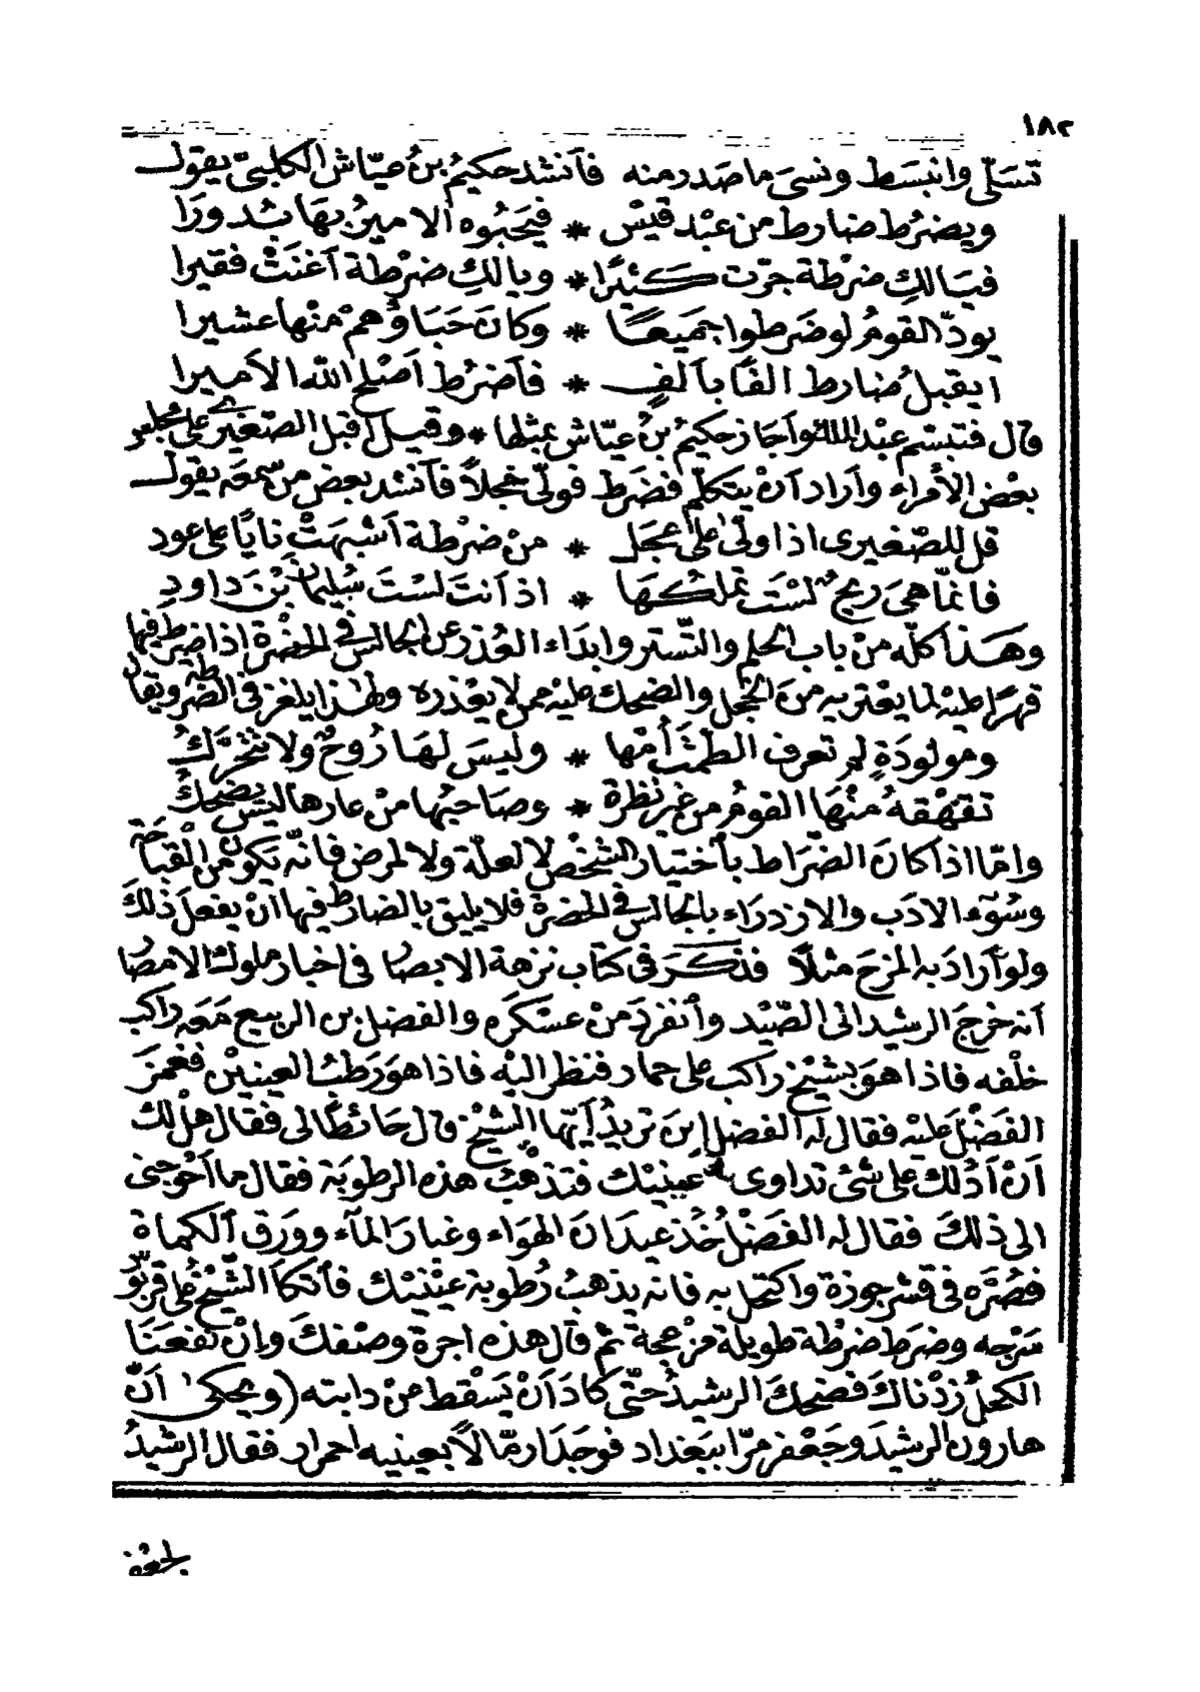 ١٨٢
تسَلّى وانبسَط ونسىَ ما صَدر منه فآنشد حكيمُ بنُ عيّاش الكلبىّ يقول
ويضرُط ضارط من عبْد قيْس * فيَحبُوه الاميرُ بهَا بُدورَا
فيَالكِ ضرْطة جرّت كَثيرًا * ويالكِ ضرْطة آغنَتْ فقيرا
يودّ القومُ لو ضَرطوا جَميعًا * وكانَ حَبَاؤُهمْ منْها عشيرا
ايقبلُ ضارط الفًا بآلفٍ * فآضرُط آصْلح الله الاَميرا
قال فتبسّم عبْد الملك وآجازحكيمُ بنُ عيّاش بمثلها * وقيل آقبل الصّغيرى على مجلس
بعْض الأمراء وآراد آنْ يتكلّم فضَرط فولّى خجلاً فآنشد بعض من سمعَه يقول
قل للصّغيرى اذا ولّى على عجَل * منْ ضرْطة آشبهَتْ نايًا على عود
فانمّا هىَ ريحٌ لسْتَ تملكُهَا * اذ آنتَ لسْتَ سُليمانَ بْنَ داودِ
وهَذا كلّه منْ باب الحلم والتّستر وابدَاء العُذر عن الجالس فى الحضْرة اذا ضرط فيها
قهرًا عليْه لما يعْتريه منَ الخجَل والضحك عليْه ممن لا يعْذره ولهذا يلغز فى الضّرطة ويقال
ومولودَةٍ لم تعرف الطمْثَ أُمّها * وليسَ لهَا رُوحٌ ولا تتحَرّكُ
تقهْقهُ منْهَا القومُ من غير نظْرة * وصَاحبُها منْ عارها ليسَ يضحكُ
وامّا اذا كانَ الضّرَاط بآختيار الشخْص لا لعلّة ولا لمرض فانّه يَكون منَ القبَاحَة
وسُوٓء الادَب والازدرَاء بالجالس فى الحضرة فلا يليق بالضارط فيها آنْ يفعلَ ذلكَ
ولو آرادَ به المزحَ مثلاً فذكَرَ فى كتاب نزهة الابصار فى اخبار ملوك الامصار
آنه خرجَ الرشيد الى الصّيْد وآنفردَ منْ عسْكَره والفضل بن الربيع مَعَه راكب
خلْفه فاذا هوَ بشيْخ راكب على حمار فنظر اليْه فاذا هوَ رَطبُ العينيْن فغمزَ
الفَضْلَ عليْه فقال له الفضل اين تريدُ آيّها الشيْخ قال حَائطًا لى فقال هلْ لك
آنْ آدُلك على شئ تداوى به عينيْك فتذْهبَ هذه الرطوبَة فقال ما آحْوجَنى
الى ذلكَ فقال له الفَضْلُ خُذ عيدَانَ الهوَاء وغبارَ المآء ووَرَق آلكمأة
فصُرّه فى قشر جوزة واكتحل به فانه يذهبُ رُطوبة عيْنيْك فآتكآ الشّيْخُ على قربُوس
سَرْجه وضرَط ضرْطة طويلة مزعجة ثمّ قال هذه اجرة وصْفكَ وانْ نفعَنَا
الكحلُ زدْناكَ فضحكَ الرشيدُ حتّى كادَ آنْ يَسْقط عنْ دابته (ويحكى آنّ
هارون الرشيدَ وجَعْفر مرّا ببَغداد فوجَدَا رمّالاً بعينيه احمرار فقال الرشيدُ
لجعْفر